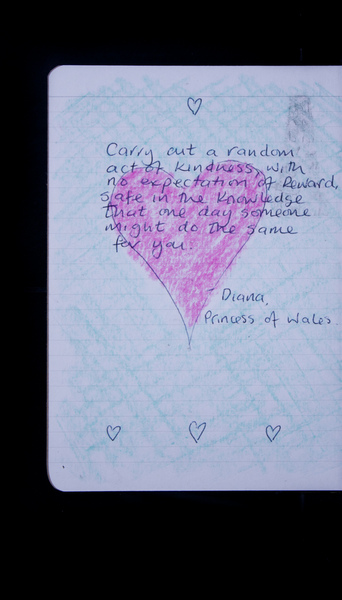 Carry out a random
act of kindness, with
no expectation of Reward,
safe in the knowledge
that one day someone
might do the same
for you.
- Diana,
Princess of Wales